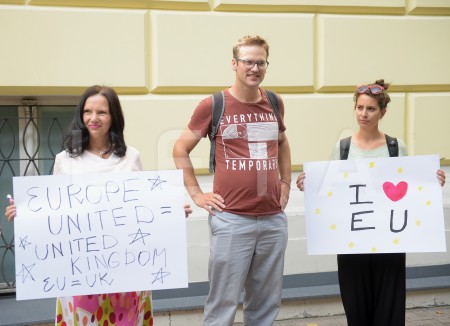 EUROPE
UNITED =
UNITED
KINGDOM
EU = UK
EVERYTHING
TEMPORARY
I ♥
EU